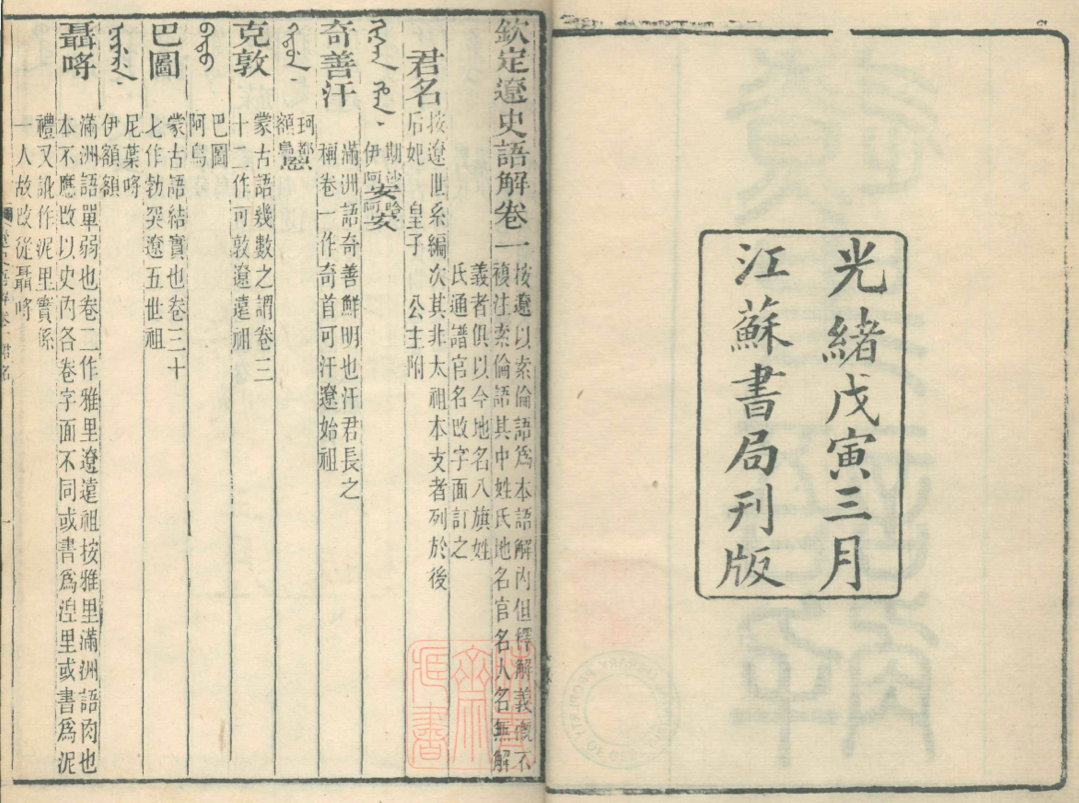 光緒戊寅三月
江蘇書局刊版
欽定遼史語解卷一
按遼以索倫語爲本語解內但釋解義概不
複注索倫語其中姓氏地名官名人名無解
義者俱以今地名八旗姓
氏通譜官名改字面訂之
君名
按遼世系編次其非太祖本支者列於後
后妃 皇子 公主附
期沙安哈安
伊阿阿
奇善汗
滿洲語奇善鮮明也汗君長之
稱卷一作奇首可汗遼始祖
珂都
額烏恩
克敦
蒙古語幾數之謂卷三
十二作可敦遼遠祖
巴圖
阿烏
巴圖
蒙古語結實也卷三十
七作勃突遼五世祖
尼葉哷
伊額額
聶哷
滿洲語單弱也卷二作雅里遼遠祖按雅里滿洲語肉也
本不應改以史內各卷字面不同或書爲涅里或書爲泥
禮又訛作泥里實係
一人故改從聶哷
君名
一